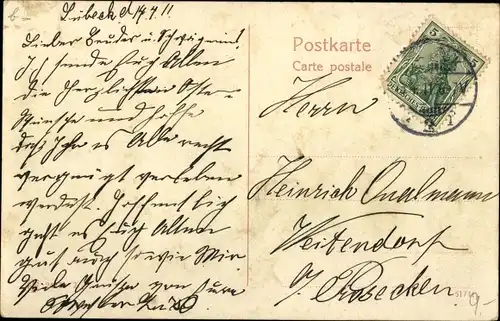 Lübeck d 14.4.11.
Lieber Bruder u. Schwägerin!
Ich sende Euch Allen
die herzlichsten Oster-
Wünsche und hoffe
daß Ihr es Alle recht
vergnügt verleben
werdet. Hoffentlich
geht es Euch Allen
gut auch sowie Mir.
Viele Grüße von Eure
Postkarte
Carte postale
5
Herrn
Heinrich
Weitendorf
b/ Proseken
9.-